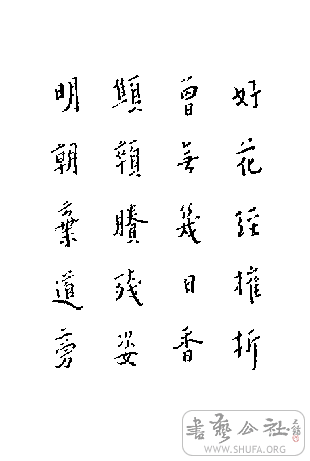 好花經摧折
曾無幾日香
顦顇賸殘姿
明朝棄道旁
書藝公社
WWW.SHUFA.ORG